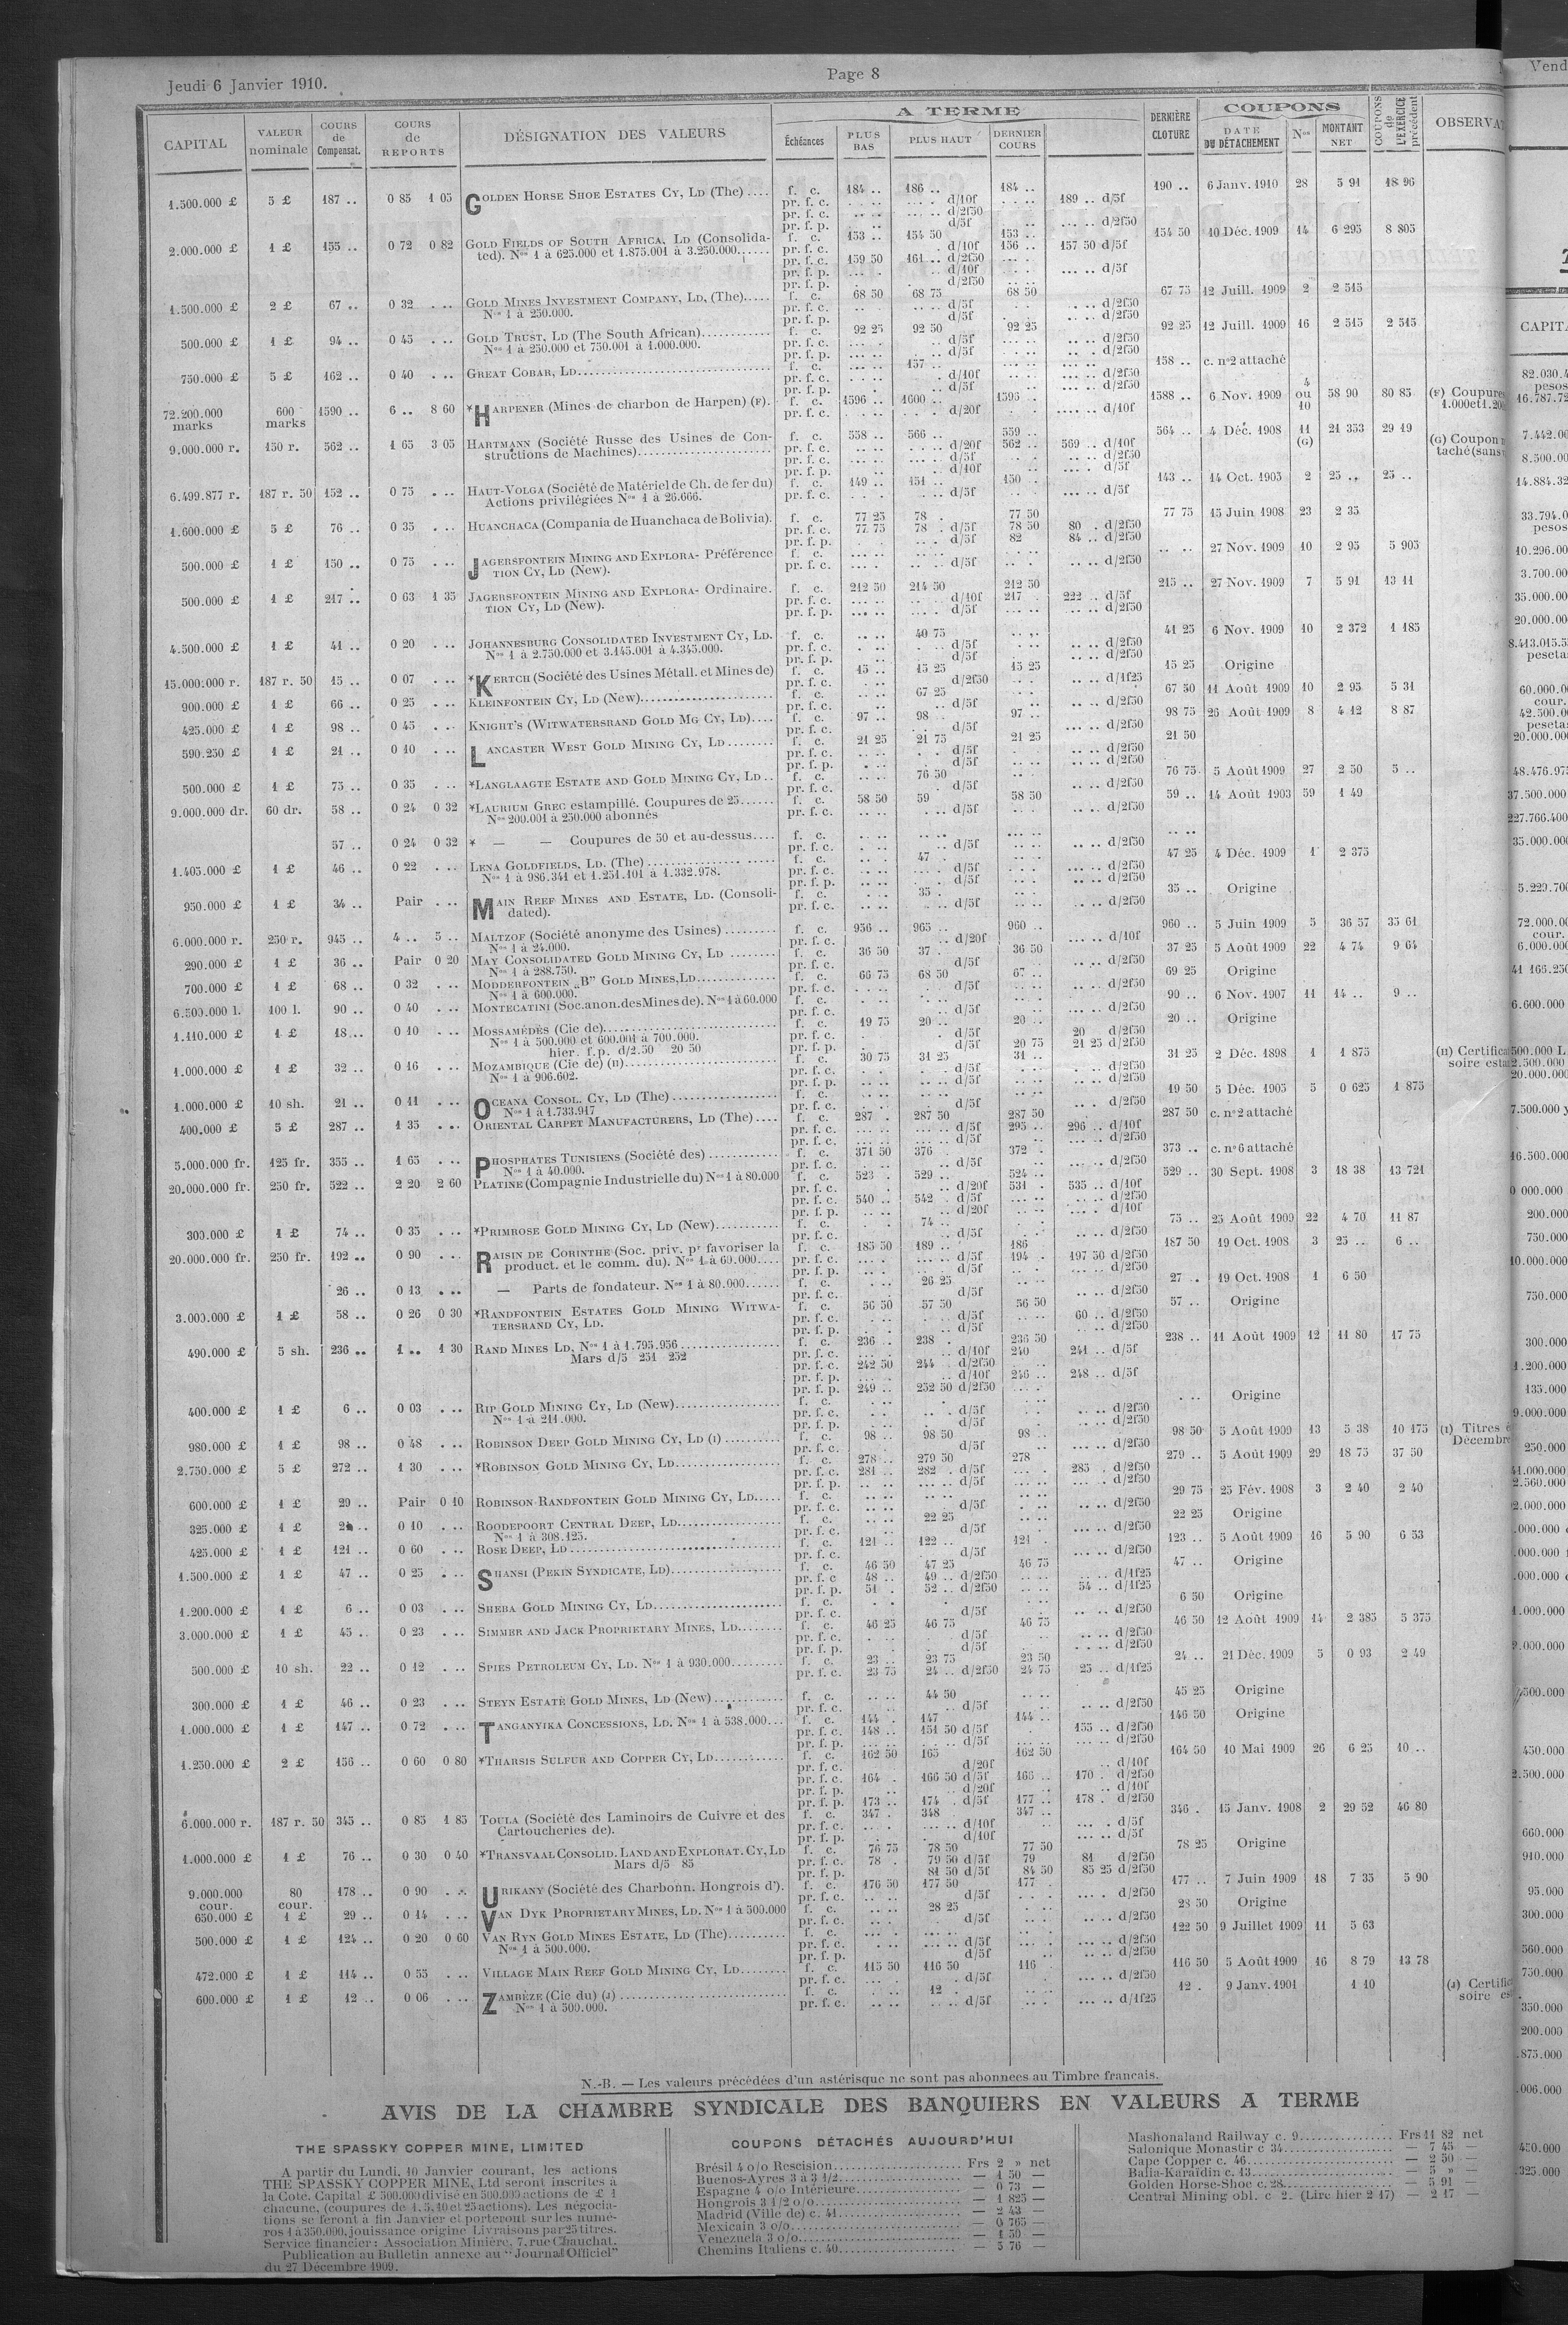 Jeudi 6 Janvier 1910.
Page 8
CAPITAL
VALEUR nominale
COURS de Compensat.
COURS de REPORTS
DÉSIGNATION DES VALEURS
A TERME
Échéances
PLUS BAS
PLUS HAUT
DERNIER COURS
DERNIÈRE CLOTURE
COUPONS
DATE DU DÉTACHEMENT
Nos
MONTANT NET
COUPONS de L'EXERCICE précédent
1.500.000 £ 5 £ 187 .. 0 85 1 05 GOLDEN HORSE SHOE ESTATES CY, LD (The) .... f. c. 184 .. 186 .. 184 .. 190 .. 6 Janv. 1910 28 5 91 18 96
pr. f. c. d/10f 189 .. d/5f
pr. f. c. d/2f50
pr. f. p. d/5f d/2f50
2.000.000 £ 1 £ 155 .. 0 72 0 82 GOLD FIELDS OF SOUTH AFRICA, LD (Consolida- f. c. 153 .. 154 50 153 .. 154 50 10 Déc. 1909 14 6 295 8 805
ted). Nos 1 à 625.000 et 1.875.001 à 3.250.000...... pr. f. c. d/10f 156 .. 157 50 d/5f
pr. f. c. 159 50 161 .. d/2f50
pr. f. p. d/10f d/5f
pr. f. p. d/2f50
1.500.000 £ 2 £ 67 .. 0 32 GOLD MINES INVESTMENT COMPANY, LD, (The)..... f. c. 68 50 68 75 68 50 67 75 12 Juill. 1909 2 2 515
Nos 1 à 250.000. pr. f. c. d/5f d/2f50
pr. f. p. d/5f d/2f50
500.000 £ 1 £ 94 .. 0 45 GOLD TRUST, LD (The South African)............ f. c. 92 25 92 50 92 25 92 25 12 Juill. 1909 16 2 515 2 515
Nos 1 à 250.000 et 750.001 à 1.000.000. pr. f. c. d/5f d/2f50
pr. f. p. d/5f d/2f50
750.000 £ 5 £ 162 .. 0 40 GREAT COBAR, LD............ f. c. 157 .. 158 .. c. no2 attaché
pr. f. c. d/10f d/2f50
pr. f. p. d/5f d/2f50
72.200.000 marks 600 marks 1590 .. 6 .. 8 60 *HARPENER (Mines de charbon de Harpen) (F). f. c. 1596 .. 1600 .. 1595 . 1588 .. 6 Nov. 1909 4 ou 10 58 90 80 85
pr. f. c. d/20f d/10f
9.000.000 r. 150 r. 562 .. 1 65 3 05 HARTMANN (Société Russe des Usines de Con- f. c. 558 .. 566 .. 559 .. 564 .. 4 Déc. 1908 11 (G) 21 353 29 19
structions de Machines)............ pr. f. c. d/20f 562 .. 569 .. d/10f
pr. f. c. d/5f d/2f50
pr. f. p. d/10f d/5f
6.499.877 r. 187 r. 50 152 .. 0 75 HAUT-VOLGA (Société de Matériel de Ch. de fer du) f. c. 149 .. 151 .. 150 . 143 .. 14 Oct. 1905 2 25 .. 25 ..
Actions privilégiées Nos 1 à 26.666. pr. f. c. d/5f d/5f
1.600.000 £ 5 £ 76 .. 0 35 HUANCHACA (Compania de Huanchaca de Bolivia). f. c. 77 25 78 . 77 50 77 75 15 Juin 1908 23 2 35
pr. f. c. 77 75 78 . d/5f 78 50 80 . d/2f50
pr. f. p. d/5f 82 84 .. d/2f50
500.000 £ 1 £ 150 .. 0 75 JAGERSFONTEIN MINING AND EXPLORA- Préférence f. c. 27 Nov. 1909 10 2 95 5 905
TION CY, LD (New). pr. f. c. d/5f d/2f50
500.000 £ 1 £ 217 .. 0 63 1 35 JAGERSFONTEIN MINING AND EXPLORA- Ordinaire. f. c. 212 50 214 50 212 50 215 .. 27 Nov. 1909 7 5 91 13 11
TION CY, LD (New). pr. f. c. d/10f 217 . 222 .. d/5f
pr. f. p. d/5f d/2f50
4.500.000 £ 1 £ 41 .. 0 20 JOHANNESBURG CONSOLIDATED INVESTMENT CY, LD. f. c. 40 75 41 25 6 Nov. 1909 10 2 372 1 185
Nos 1 à 2.750.000 et 3.145.001 à 4.345.000. pr. f. c. d/5f d/2f50
pr. f. p. d/5f d/2f50
15.000.000 r. 187 r. 50 15 .. 0 07 *KERTCH (Société des Usines Métall. et Mines de) f. c. 15 .. 15 25 15 25 15 25 Origine
pr. f. c. d/2f50 d/1f25
900.000 £ 1 £ 66 .. 0 25 KLEINFONTEIN CY, LD (New)............ f. c. 67 25 67 50 11 Août 1909 10 2 95 5 31
pr. f. c. d/5f d/2f50
425.000 £ 1 £ 98 .. 0 45 KNIGHT'S (WITWATERSRAND GOLD MG CY, LD).... f. c. 97 .. 98 .. 97 .. 98 75 26 Août 1909 8 4 12 8 87
pr. f. c. d/5f d/2f50
590.250 £ 1 £ 21 .. 0 10 LANCASTER WEST GOLD MINING CY, LD ........ f. c. 21 25 21 75 21 25 21 50
pr. f. c. d/5f d/2f50
pr. f. p. d/5f d/2f50
500.000 £ 1 £ 75 .. 0 35 *LANGLAAGTE ESTATE AND GOLD MINING CY, LD.. f. c. 76 50 76 75 5 Août 1909 27 2 50 5 ..
pr. f. c. d/5f d/2f50
9.000.000 dr. 60 dr. 58 .. 0 24 0 32 *LAURIUM GREC estampillé. Coupures de 25...... f. c. 58 50 59 58 50 59 .. 14 Août 1903 59 1 49
Nos 200.001 à 250.000 abonnés pr. f. c. d/5f d/2f50
57 .. 0 24 0 32 * — — Coupures de 50 et au-dessus.... f. c.
pr. f. c. d/5f d/2f50
1.405.000 £ 1 £ 46 .. 0 22 LENA GOLDFIELDS, LD. (The) ............ f. c. 47 . 47 25 4 Déc. 1909 1 2 375
Nos 1 à 986.341 et 1.251.101 à 1.332.978. pr. f. c. d/5f d/2f50
pr. f. p. d/5f d/2f50
950.000 £ 1 £ 34 .. Pair MAIN REEF MINES AND ESTATE, LD. (Consoli- f. c. 35 . 35 .. Origine
dated). pr. f. c. d/5f d/2f50
6.000.000 r. 250 r. 945 .. 4 .. 5 .. MALTZOF (Société anonyme des Usines) ......... f. c. 956 .. 965 .. 960 .. 960 .. 5 Juin 1909 5 36 57 35 61
Nos 1 à 24.000. pr. f. c. d/20f d/10f
290.000 £ 1 £ 36 .. Pair 0 20 MAY CONSOLIDATED GOLD MINING CY, LD ........ f. c. 36 50 37 . 36 50 37 25 5 Août 1909 22 4 74 9 64
Nos 1 à 288.750. pr. f. c. d/5f d/2f50
700.000 £ 1 £ 68 .. 0 32 MODDERFONTEIN „B" GOLD MINES, LD............ f. c. 66 75 68 50 67 .. 69 25 Origine
Nos 1 à 600.000. pr. f. c. d/5f d/2f50
6.500.000 l. 100 l. 90 .. 0 40 MONTECATINI (Soc.anon.desMines de). Nos 1 à 60.000 f. c. 90 .. 6 Nov. 1907 11 14 .. 9 ..
pr. f. c. d/5f d/2f50
1.110.000 £ 1 £ 18 .. 0 10 MOSSAMÉDÈS (Cie de)............ f. c. 19 75 20 .. 20 .. 20 .. Origine
Nos 1 à 500.000 et 600.001 à 700.000. pr. f. c. d/5f 20 d/2f50
hier. f.p. d/2.50 20 50 pr. f. p. d/5f 20 75 21 25 d/2f50
1.000.000 £ 1 £ 32 .. 0 16 MOZAMBIQUE (Cie de) (H)............ f. c. 30 75 31 25 31 .. 31 25 2 Déc. 1898 1 1 875
Nos 1 à 906.602. pr. f. c. d/5f d/2f50
pr. f. p. d/5f d/2f50
1.000.000 £ 10 sh. 21 .. 0 11 OCEANA CONSOL. CY, LD (The) ............ f. c. 19 50 5 Déc. 1905 5 0 625 1 875
Nos 1 à 1.733.917 pr. f. c. d/5f d/2f50
400.000 £ 5 £ 287 .. 1 35 ORIENTAL CARPET MANUFACTURERS, LD (The).... f. c. 287 . 287 50 287 50 287 50 c. no2 attaché
pr. f. c. d/5f 295 .. 296 .. d/10f
pr. f. c. d/5f d/2f50
5.000.000 fr. 125 fr. 355 .. 1 65 PHOSPHATES TUNISIENS (Société des) ............ f. c. 371 50 376 . 372 . 373 .. c. no6 attaché
Nos 1 à 40.000. pr. f. c. d/5f d/2f50
20.000.000 fr. 250 fr. 522 .. 2 20 2 60 PLATINE (Compagnie Industrielle du) Nos 1 à 80.000 f. c. 523 . 529 .. 524 .. 529 .. 30 Sept. 1908 3 18 38 13 721
pr. f. c. d/20f 531 . 535 .. d/10f
pr. f. c. 540 .. 542 . d/5f d/2f50
pr. f. p. d/20f d/10f
300.000 £ 1 £ 74 .. 0 35 *PRIMROSE GOLD MINING CY, LD (New)........... f. c. 74 .. 75 .. 25 Août 1909 22 4 70 11 87
pr. f. c. d/5f d/2f50
20.000.000 fr. 250 fr. 192 .. 0 90 RAISIN DE CORINTHE (Soc. priv. pr favoriser la f. c. 185 50 189 .. 186 187 50 19 Oct. 1908 3 25 .. 6 ..
product. et le comm. du). Nos 1 à 60.000.... pr. f. c. d/5f 194 . 197 50 d/2f50
pr. f. p. d/5f d/2f50
26 .. 0 13 — Parts de fondateur. Nos 1 à 80.000...... f. c. 26 25 27 .. 19 Oct. 1908 1 6 50
pr. f. c. d/5f d/2f50
3.000.000 £ 1 £ 58 .. 0 26 0 30 *RANDFONTEIN ESTATES GOLD MINING WITWA- f. c. 56 50 57 50 56 50 57 .. Origine
TERSRAND CY, LD. pr. f. c. d/5f 60 .. d/2f50
pr. f. p. d/5f d/2f50
490.000 £ 5 sh. 236 .. 1 .. 1 30 RAND MINES LD, Nos 1 à 1.795.956............ f. c. 236 .. 238 . 236 50 238 .. 11 Août 1909 12 11 80 17 75
Mars d/5 251 252 pr. f. c. d/10f 240 241 .. d/5f
pr. f. c. 242 50 244 . d/2f50
pr. f. p. d/10f 246 .. 248 .. d/5f
pr. f. p. 249 .. 252 50 d/2f50
400.000 £ 1 £ 6 .. 0 03 RIP GOLD MINING CY, LD (New)............ f. c. Origine
Nos 1 à 211.000. pr. f. c. d/5f d/2f50
pr. f. p. d/5f d/2f50
980.000 £ 1 £ 98 .. 0 48 ROBINSON DEEP GOLD MINING CY, LD (I) ........ f. c. 98 .. 98 50 98 .. 98 50 5 Août 1909 13 5 38 10 175
pr. f. c. d/5f d/2f50
2.750.000 £ 5 £ 272 .. 1 30 *ROBINSON GOLD MINING CY, LD............ f. c. 278 .. 279 50 278 279 .. 5 Août 1909 29 18 75 37 50
pr. f. c. 281 .. 282 . d/5f 285 . d/2f50
pr. f. p. d/5f d/2f50
600.000 £ 1 £ 29 .. Pair 0 10 ROBINSON RANDFONTEIN GOLD MINING CY, LD..... f. c. 29 75 25 Fév. 1908 3 2 40 2 40
pr. f. c. d/5f d/2f50
325.000 £ 1 £ 0 10 ROODEPOORT CENTRAL DEEP, LD............ f. c. 22 25 22 25 Origine
Nos 1 à 308.125. pr. f. c. d/5f d/2f50
425.000 £ 1 £ 121 .. 0 60 ROSE DEEP, LD ............ f. c. 121 .. 122 .. 121 . 123 .. 5 Août 1909 16 5 90 6 53
pr. f. c. d/5f d/2f50
1.500.000 £ 1 £ 47 .. 0 25 SHANSI (PEKIN SYNDICATE, LD)............ f. c. 46 50 47 25 46 75 47 .. Origine
pr. f. c 48 .. 49 .. d/2f50 d/1f25
pr. f. p. 51 . 52 .. d/2f50 54 .. d/1f25
1.200.000 £ 1 £ 6 .. 0 03 SHEBA GOLD MINING CY, LD............ f. c. 6 50 Origine
pr. f. c. d/5f d/2f50
3.000.000 £ 1 £ 45 .. 0 23 SIMMER AND JACK PROPRIETARY MINES, LD........ f. c. 46 25 46 75 46 75 46 50 12 Août 1909 14 2 385 5 375
pr. f. c. d/5f d/2f50
pr. f. p. d/5f d/2f50
500.000 £ 10 sh. 22 .. 0 12 SPIES PETROLEUM CY, LD. Nos 1 à 930.000......... f. c. 23 .. 23 75 23 50 24 .. 21 Déc. 1909 5 0 93 2 49
pr. f. c. 23 75 24 .. d/2f50 24 75 25 .. d/1f25
300.000 £ 1 £ 46 .. 0 23 STEYN ESTATE GOLD MINES, LD (New)............ f. c. 44 50 45 25 Origine
pr. f. c. d/5f d/2f50
1.000.000 £ 1 £ 147 .. 0 72 TANGANYIKA CONCESSIONS, LD. Nos 1 à 538.000... f. c. 144 .. 147 144 .. 146 50 Origine
pr. f. c. 148 .. 151 50 d/5f 155 .. d/2f50
pr. f. p. d/5f d/2f50
1.250.000 £ 2 £ 156 .. 0 60 0 80 *THARSIS SULFUR AND COPPER CY, LD............ f. c. 162 50 165 162 50 164 50 10 Mai 1909 26 6 25 10 ..
pr. f. c. d/20f d/10f
pr. f. c. 164 . 166 50 d/5f 166 .. 170 . d/2f50
pr. f. p. d/20f d/10f
pr. f. p. 173 .. 174 . d/5f 177 .. 178 . d/2f50
6.000.000 r. 187 r. 50 345 .. 0 85 1 85 TOULA (Société des Laminoirs de Cuivre et des f. c. 347 . 348 347 .. 346 . 15 Janv. 1908 2 29 52 46 80
Cartoucheries de). pr. f. c. d/10f d/5f
pr. f. p. d/10f d/5f
1.000.000 £ 1 £ 76 .. 0 30 0 40 *TRANSVAAL CONSOLID. LAND AND EXPLORAT. CY, LD f. c. 76 75 78 50 77 50 78 25 Origine
Mars d/5 85 pr. f. c. 78 . 79 50 d/5f 79 81 d/2f50
pr. f. p. 84 50 d/5f 84 50 85 25 d/2f50
9.000.000 cour. 80 cour. 178 .. 0 90 URIKANY (Société des Charbonn. Hongrois d'). f. c. 176 50 177 50 177 . 177 .. 7 Juin 1909 18 7 35 5 90
pr. f. c. d/5f d/2f50
650.000 £ 1 £ 29 .. 0 14 VAN DYK PROPRIETARY MINES, LD. Nos 1 à 500.000 f. c. 28 25 28 50 Origine
pr. f. c. d/5f d/2f50
500.000 £ 1 £ 124 .. 0 20 0 60 VAN RYN GOLD MINES ESTATE, LD (The)........ f. c. 122 50 9 Juillet 1909 11 5 63
Nos 1 à 500.000. pr. f. c. d/5f d/2f50
pr. f. p. d/5f d/2f50
472.000 £ 1 £ 114 .. 0 55 VILLAGE MAIN REEF GOLD MINING CY, LD........ f. c. 115 50 116 50 116 . 116 50 5 Août 1909 16 8 79 13 78
pr. f. c. d/5f d/2f50
600.000 £ 1 £ 12 .. 0 06 ZAMBÈZE (Cie du) (J) ............ f. c. 12 . 12 . 9 Janv. 1901 1 10
Nos 1 à 500.000. pr. f. c. d/5f d/1f25
N.-B. — Les valeurs précédées d'un astérisque ne sont pas abonnées au Timbre français.
AVIS DE LA CHAMBRE SYNDICALE DES BANQUIERS EN VALEURS A TERME
THE SPASSKY COPPER MINE, LIMITED
A partir du Lundi, 10 Janvier courant, les actions
THE SPASSKY COPPER MINE, Ltd seront inscrites à
la Cote. Capital £ 500.000 divisé en 500.000 actions de £ 1
chacune, (coupures de 1, 5, 10 et 25 actions). Les négocia-
tions se feront à fin Janvier et porteront sur les numé-
ros 1 à 350.000, jouissance origine Livraisons par 25 titres.
Service financier : Association Minière, 7, rue Chauchat.
Publication au Bulletin annexe au "Journal Officiel"
du 27 Décembre 1909.
COUPONS DÉTACHÉS AUJOURD'HUI
Brésil 4 o/o Rescision............ Frs 2 » net
Buenos-Ayres 3 à 3 1/2............ — 1 50 —
Espagne 4 o/o Intérieure............ — 0 73 —
Hongrois 3 1/2 o/o............ — 1 825 —
Madrid (Ville de) c. 41............ — 2 43 —
Mexicain 3 o/o............ — 0 765 —
Venezuela 3 o/o............ — 1 50 —
Chemins Italiens c. 40............ — 5 76 —
Mashonaland Railway c. 9............ Frs 11 82 net
Salonique Monastir c 34............ — 7 45 —
Cape Copper c. 46............ — 2 50 —
Balia-Karaïdin c. 13............ — 5 » —
Golden Horse-Shoe c. 28............ — 5 91 —
Central Mining obl. c 2. (Lire hier 2 17) — 2 17 —